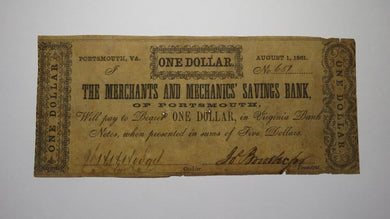 ONE DOLLAR.
PORTSMOUTH, VA. AUGUST 1, 1861.
No 651
THE MERCHANTS AND MECHANICS' SAVINGS BANK,
OF PORTSMOUTH,
Will pay to Bearer ONE DOLLAR, in Virginia Bank
Notes, when presented in sums of Five Dollars.
Cashier President
ONE DOLLAR
ONE DOLLAR